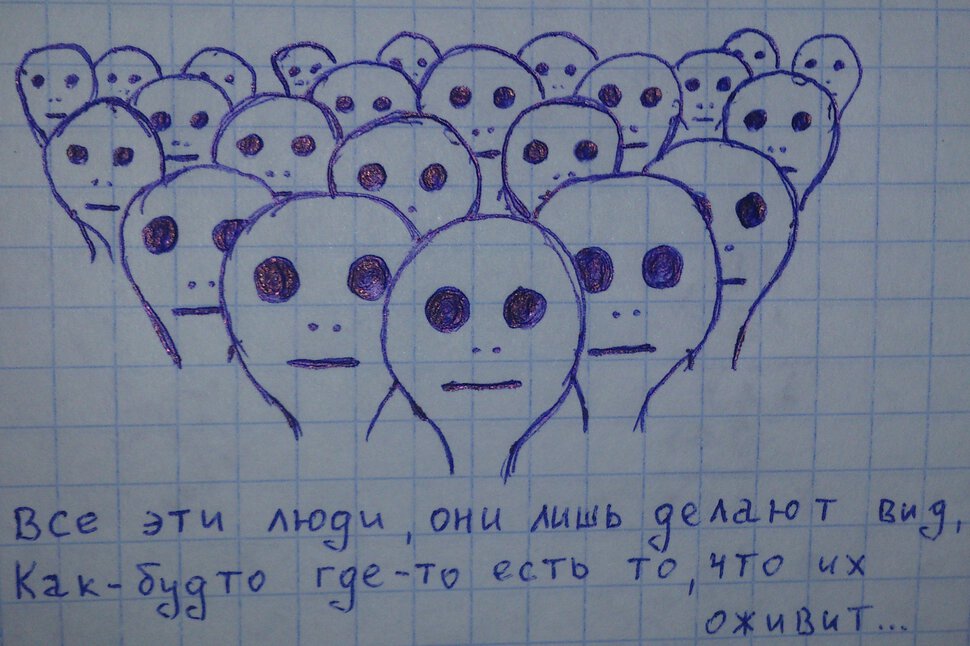 Все эти люди, они лишь делают вид,
Как-будто где-то есть то, что их
оживит...